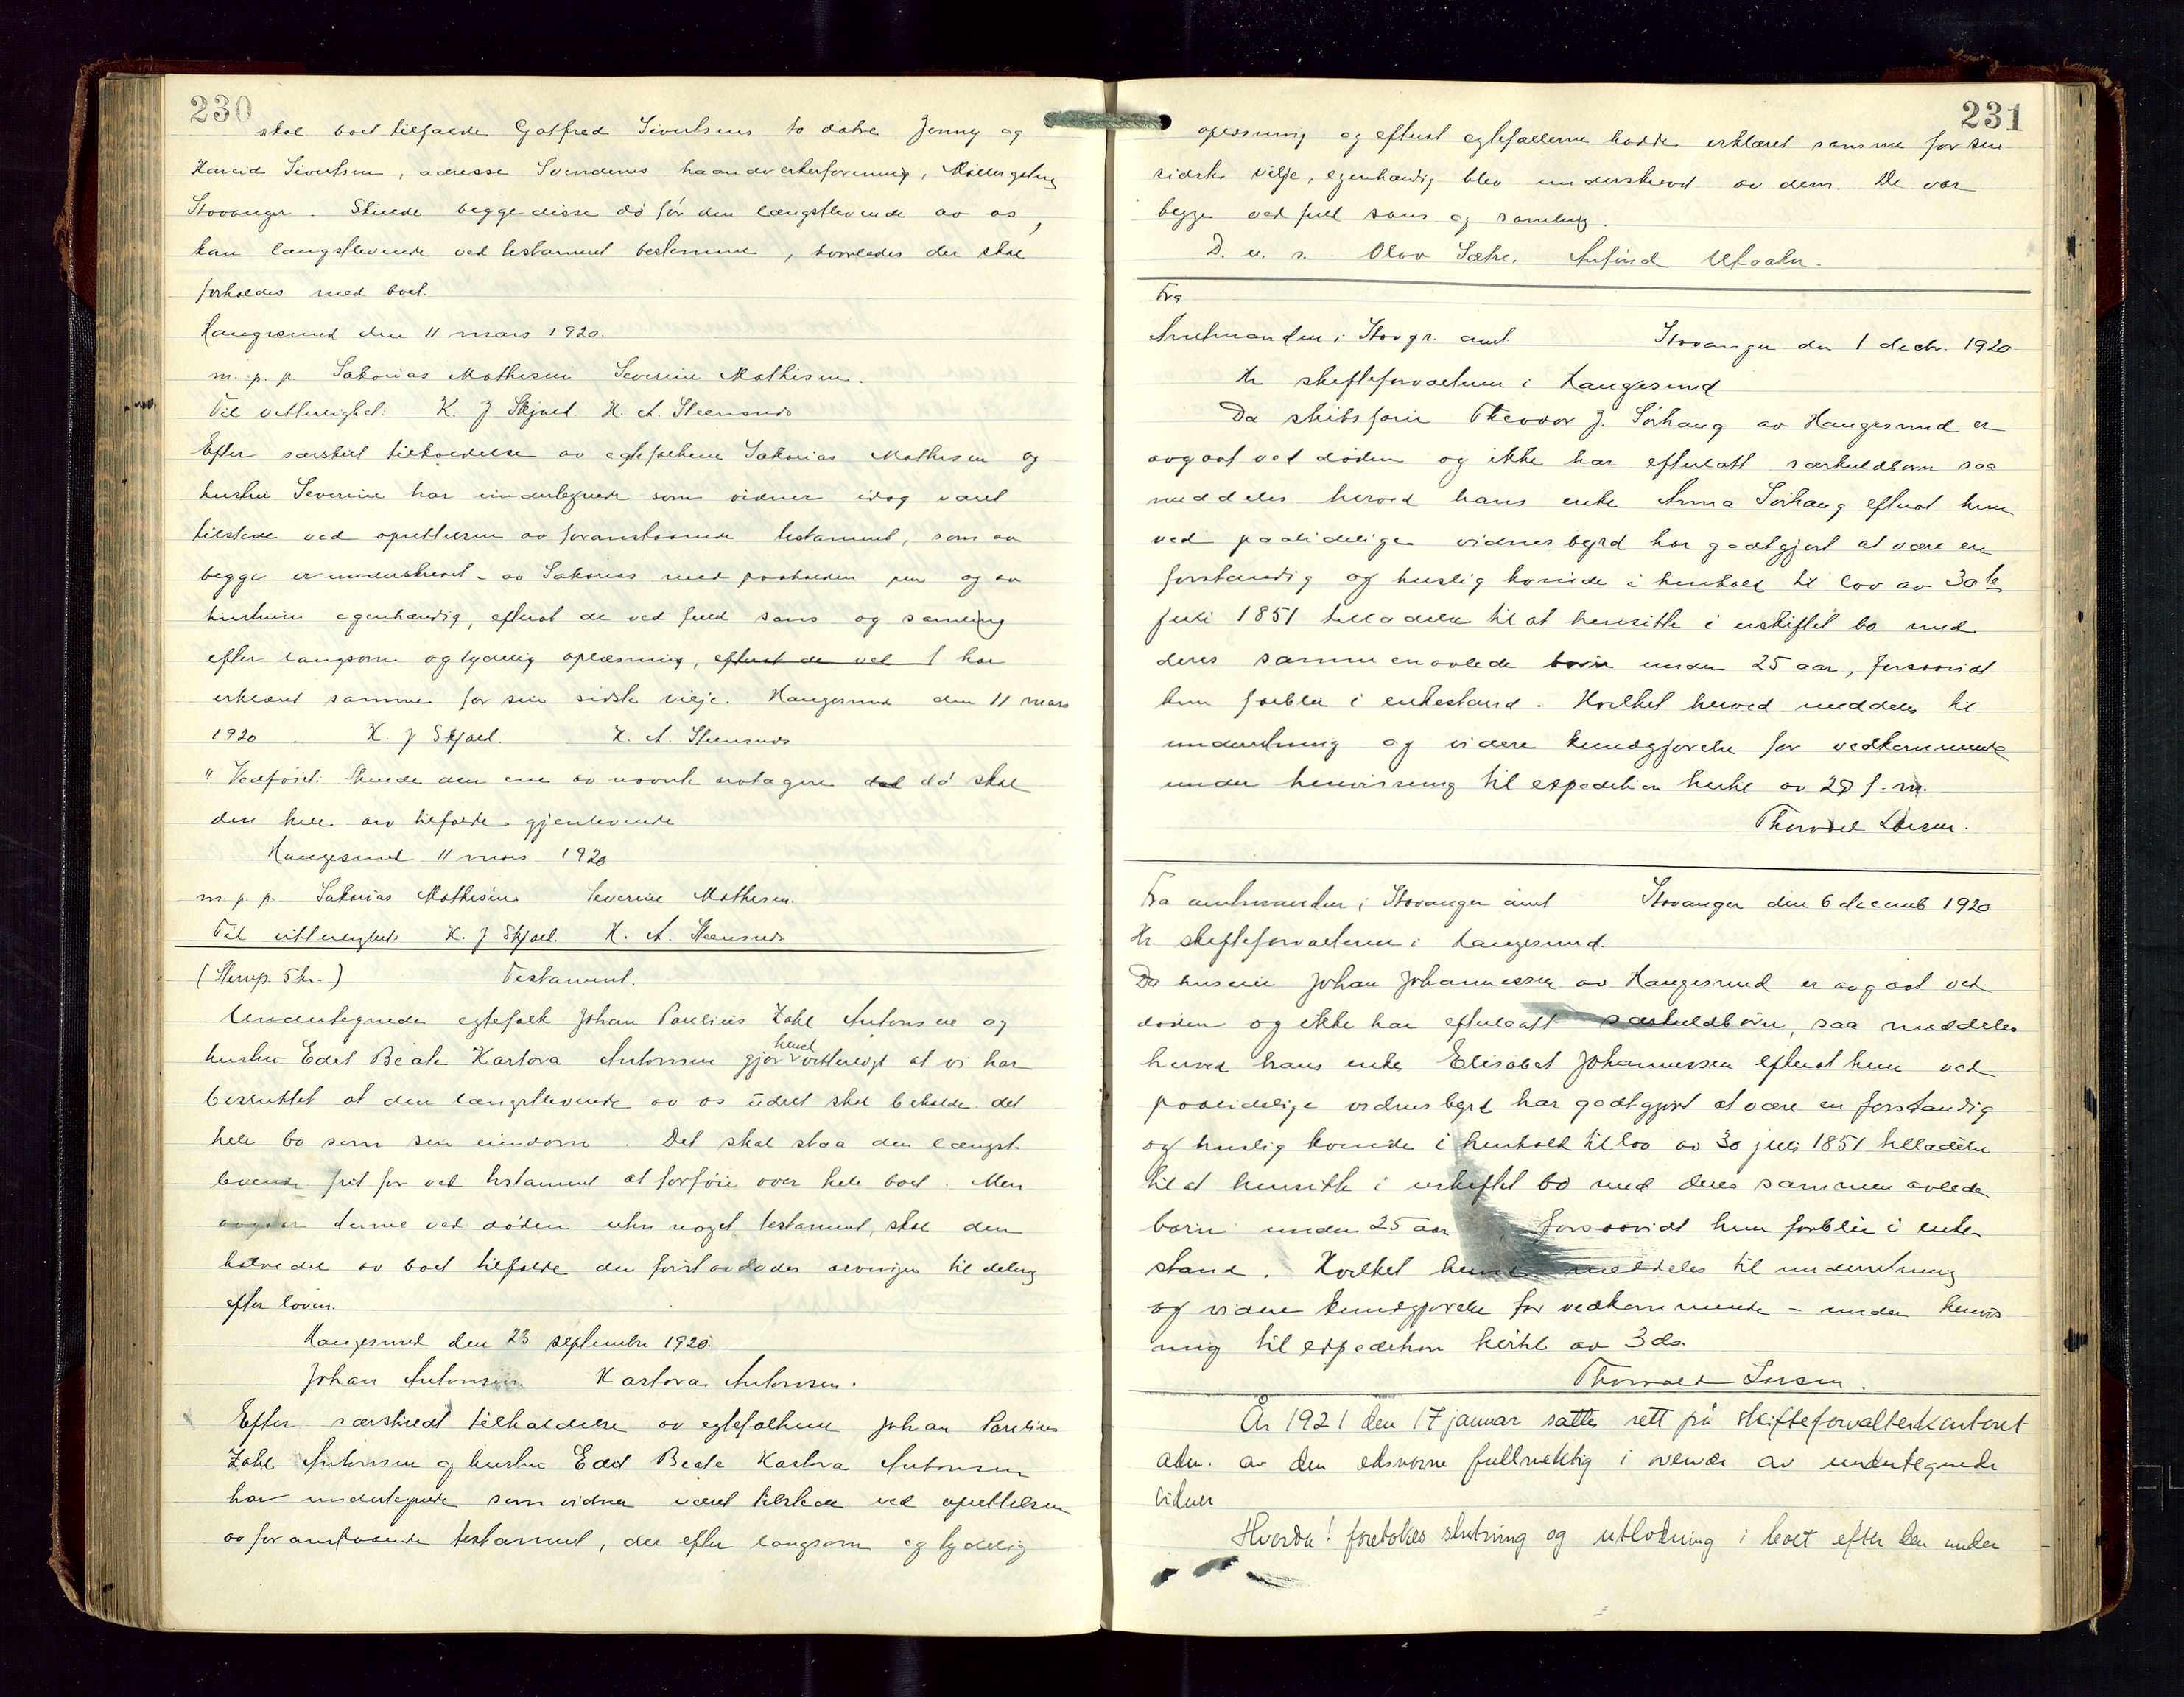 230
skal boet tilfalde Gotfred Sivertsens to døtre Jenny og
Harcid Sivertsen, adresse Svendenes haandverkerforening, Møllergaten
Stavanger. Skulde begge disse dø før den længstlevende av os,
kan længstlevende ved testament bestemme, hvorledes der skal
forholdes med boet.
Haugesund den 11 mars 1920.
m. p. p. Sakarias Mathisen Severine Mathisen.
Til vitterlighet: K. J Skjold. H. A. Steensnæs
Efter særskilt tilkaldelse av egtefolkene Sakarias Mathisen og
hustru Severine har undertegnede som vidner idag været
tilstede ved oprettelsen av foranstaaende testament, som av
begge er underskrevet - av Sakarias med paaholden pen og av
hustruen egenhændig, efterat de ved fuld sans og samling
efter langsom og tydelig oplæsning, efterat de ved f har
erklæret samme for sin sidste vilje. Haugesund den 11 mars
1920. K. J Skjold. H. A. Steensnæs
" Vedføiet: Skulde den ene av nævnte arvtagere dø skal
den hele arv tilfalde gjenlevende
Haugesund 11 mars 1920
m. p. p. Sakarias Mathisen Severine Mathisen.
Til vitterlighet: K. J Skjold. H. A. Steensnæs
(Stemp. 5 kr.) Testament.
Undertegnede egtefolk Johan Paulius Zahl Antonsen og
hustru Edel Beate Karlova Antonsen gjør herved vitterligt at vi har
besluttet at den længstlevende av os udelt skal beholde det
hele bo som sin eiendom. Det skal staa den længst-
levende frit for ved testament at forføie over hele boet. Men
avgaar denne ved døden uten noget testament, skal den
halvedel av boet tilfalde den først avdødes arvinger til deling
efter loven.
Haugesund den 23 september 1920.
Johan Antonsen Karlova Antonsen.
Efter særskildt tilkaldelse av egtefolkene Johan Paulius
Zahl Antonsen og hustru Edel Beate Karlova Antonsen
har undertegnede som vidner været tilstede ved oprettelsen
av foranstaaende testament, der efter langsom og tydelig
231
oplæsning og efterat egtefællerne hadde erklæret samme for sin
sidste vilje, egenhændig blev underskrevet av dem. De var
begge ved fuld sans og samling.
D. u. s. Olav Sætre. Arfind Utaaker.
Fra
Amtmanden i Stavgr. amt. Stavanger den 1 decbr. 1920
Hr skifteforvalteren i Haugesund
Da skibsfører Theodor J. Sørhaug av Haugesund er
avgaat ved døden og ikke har efterlatt særkuldbørn saa
meddeles herved hans enke Anna Sørhaug efterat hun
ved paalidelige vidnesbyrd har godtgjort at være en
forstandig og huslig kvinde i henhold til lov av 30 te
juli 1851 tilladelse til at hensitte i uskiftet bo med
deres sammenavlede børn under 25 aar, forsaavidt
hun forblir i enkestand. Hvilket herved meddeles til
underretning og videre kundgjørelse for vedkommende
under henvisning til expedition hertil av 29 f. m.
Thorvald Larsen.
Fra amtmanden i Stavanger amt Stavanger den 6 decemb 1920
Hr. skifteforvalteren i Haugesund.
Da huseier Johan Johannessen av Haugesund er avgaat ved
døden og ikke har efterlatt særkuldbørn, saa meddeles
herved hans enke Elisabet Johannessen efterat hun ved
paalidelige vidnesbyrd har godtgjort at være en forstandig
og huslig kvinde i henhold til lov av 30 juli 1851 tilladelse
til at hensitte i uskiftet bo med deres sammenavlede
børn under 25 aar, forsaavidt hun forblir i enke-
stand. Hvilket herved meddeles til underretning
og videre kundgjørelse for vedkommende - under henvis
ning til expedition hertil av 3 ds.
Thorvald Larsen.
År 1921 den 17 januar sattes rett på skifteforvalterkontoret
adm. av den edsvorne fullmektig i overvær av undertegnede
vidner
Hvorda! foretokes slutning og utlodning i boet efter den under